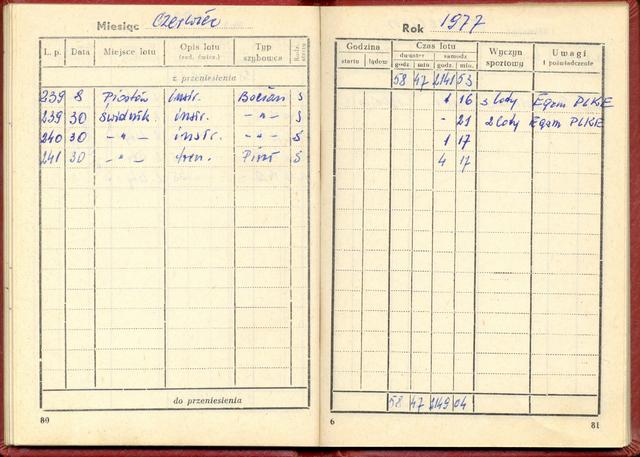 Miesiąc Czerwiec
L. p. Data Miejsce lotu Opis lotu (zad. ćwicz.) Typ szybowca Rodz. startu
z przeniesienia
239 8 Piastów instr. Bocian S
239 30 Świdnik instr. -"- S
240 30 -"- instr. S
241 30 -"- tren. Pirat S
do przeniesienia
80
Rok 1977
Godzina Czas lotu Wyczyn sportowy Uwagi i poświadczenie
startu lądow. dwuster samodz.
godz. min godz. min.
58 47 2141 53
1 16 3 loty Egam PLKE
- 21 2 loty Egam PLKE
1 17
4 17
58 47 2149 04
6 81